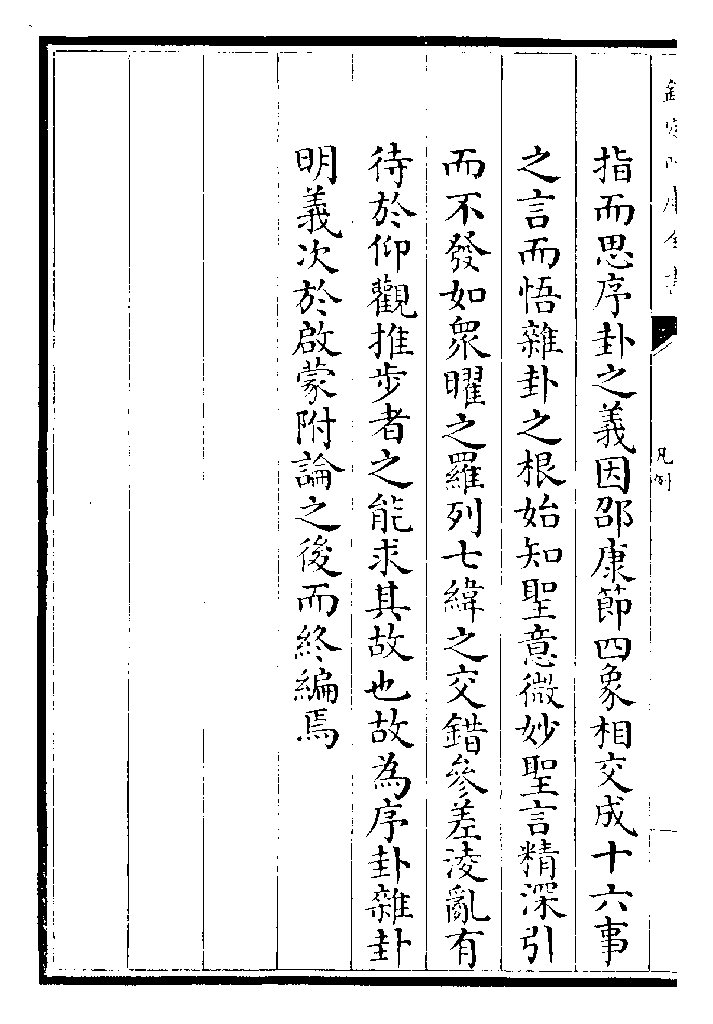 欽定四庫全書
凡例
指而思序卦之義因邵康節四象相交成十六事
之言而悟雜卦之根始知聖意微妙聖言精深引
而不發如衆曜之羅列七緯之交錯參差淩亂有
待於仰觀推步者之能求其故也故為序卦雜卦
明義次於啟蒙附論之後而終編焉